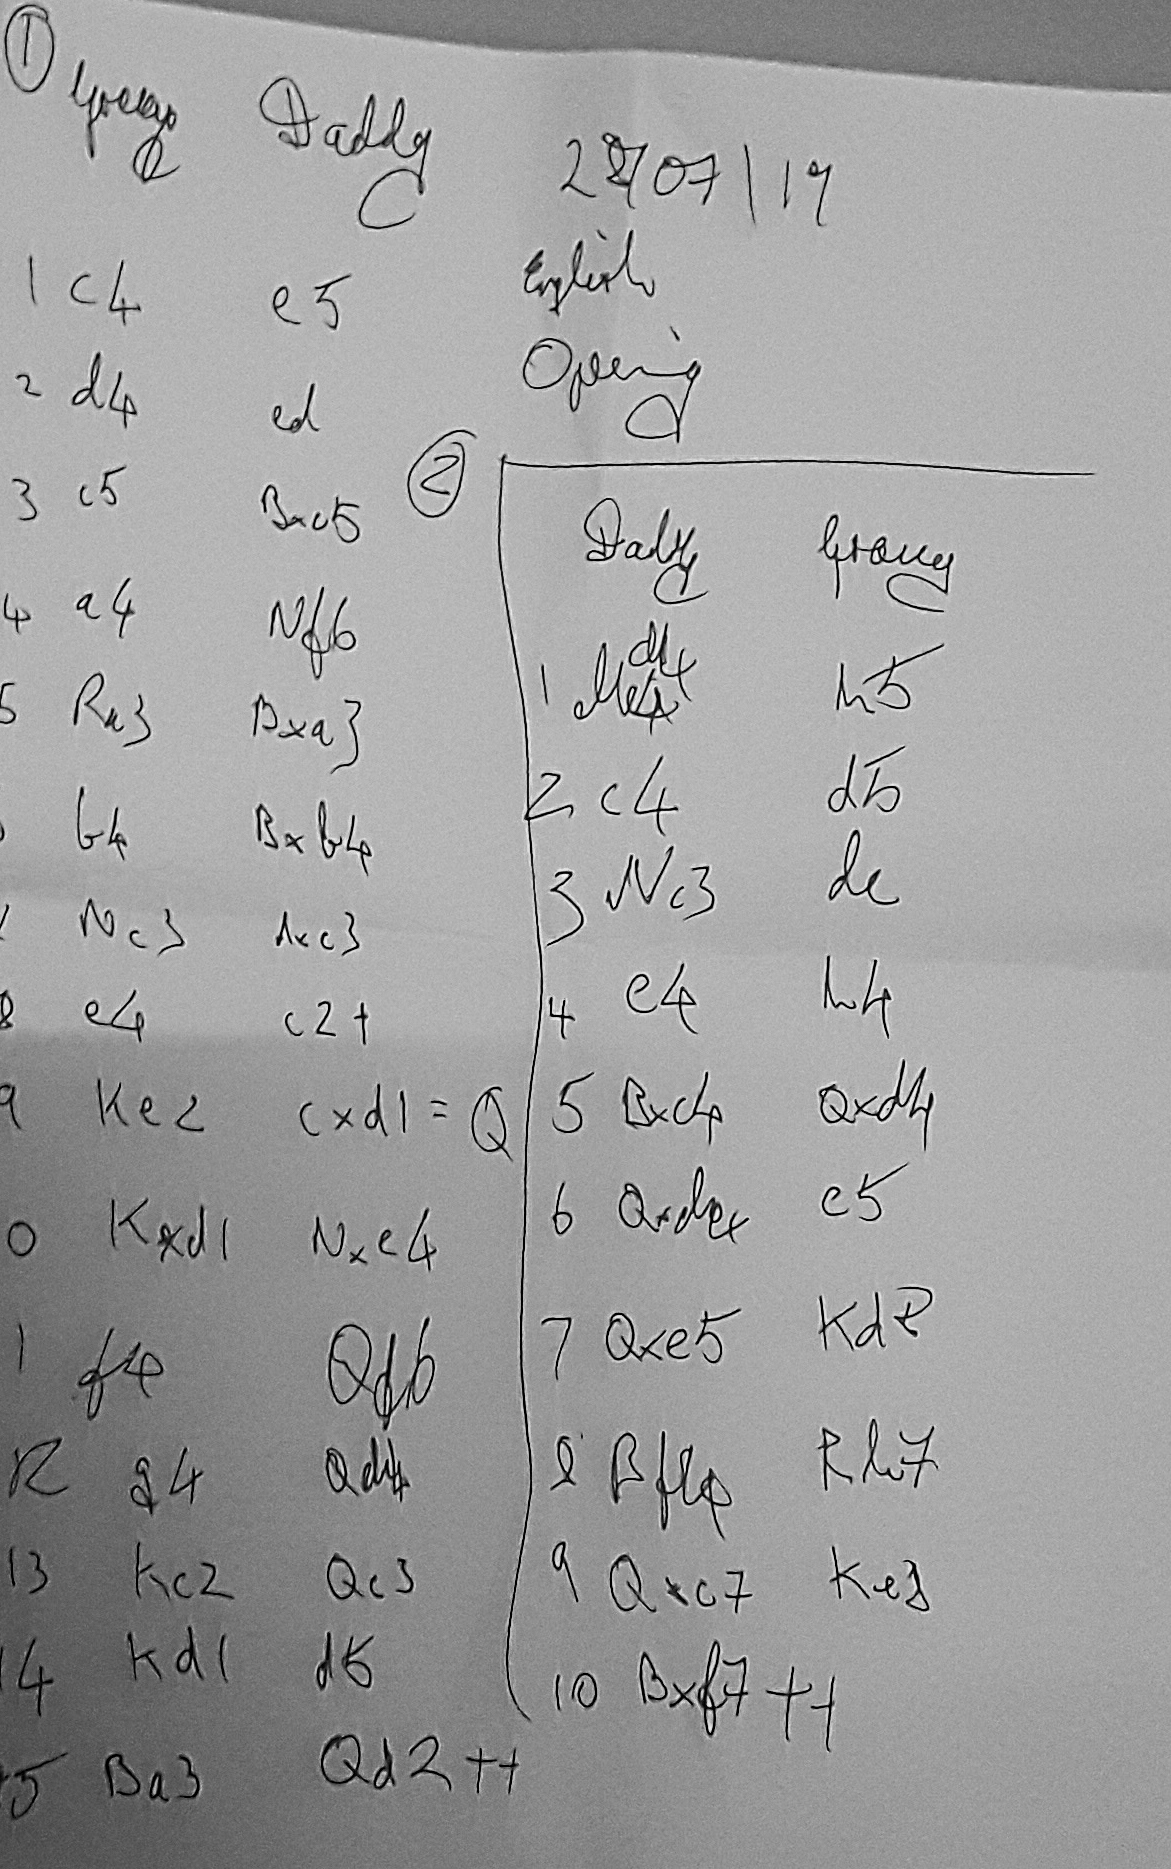 ①
Daddy
22/07/19
1 c4 e5
English
2 d4 ed
Opening
3 c5 Bxc5
4 a4 Nf6
5 Ra3 Bxa3
b4 Bxb4
Nc3 dxc3
8 e4 c2+
9 Ke2 cxd1=Q
0 Kxd1 Nxe4
1 f4 Qf6
12 g4 Qd4
13 Kc2 Qc3
14 Kd1 d5
15 Ba3 Qd2++
②
Daddy
1 d4 h5
2 c4 d5
3 Nc3 dc
4 e4 h4
5 Bxc4 Qxd4
6 Qxd4 e5
7 Qxe5 Kd8
8 Bf4 Rh7
9 Qxc7 Ke8
10 Bxf7++